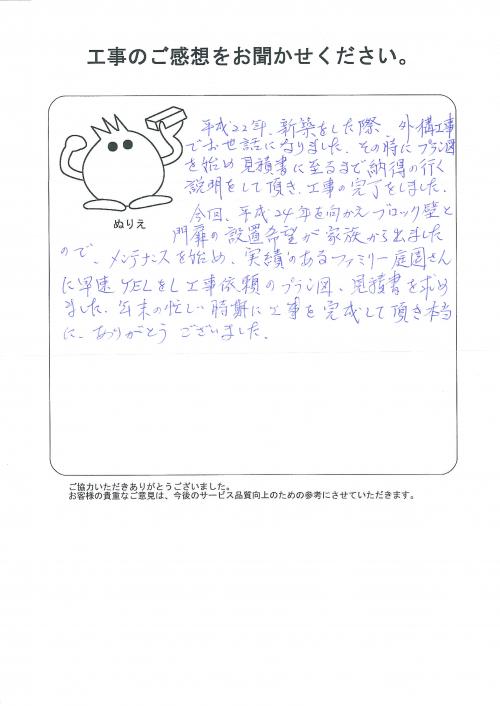 工事のご感想をお聞かせください。
平成22年、新築をした際、外構工事
でお世話になりました。その時にプラン図
を始め見積書に至るまで納得の行く
説明をして頂き、工事の完了をしました。
ぬりえ
今回、平成24年を向かえブロック壁と
門扉の設置希望が家族から出ました
ので、メンテナンスを始め、実績のあるファミリー庭園さん
に早速YELをし工事依頼のプラン図、見積書を求め
ました。年末の忙しい時期に工事を完成して頂き本当
に、ありがとうございました。
ご協力いただきありがとうございました。
お客様の貴重なご意見は、今後のサービス品質向上のための参考にさせていただきます。